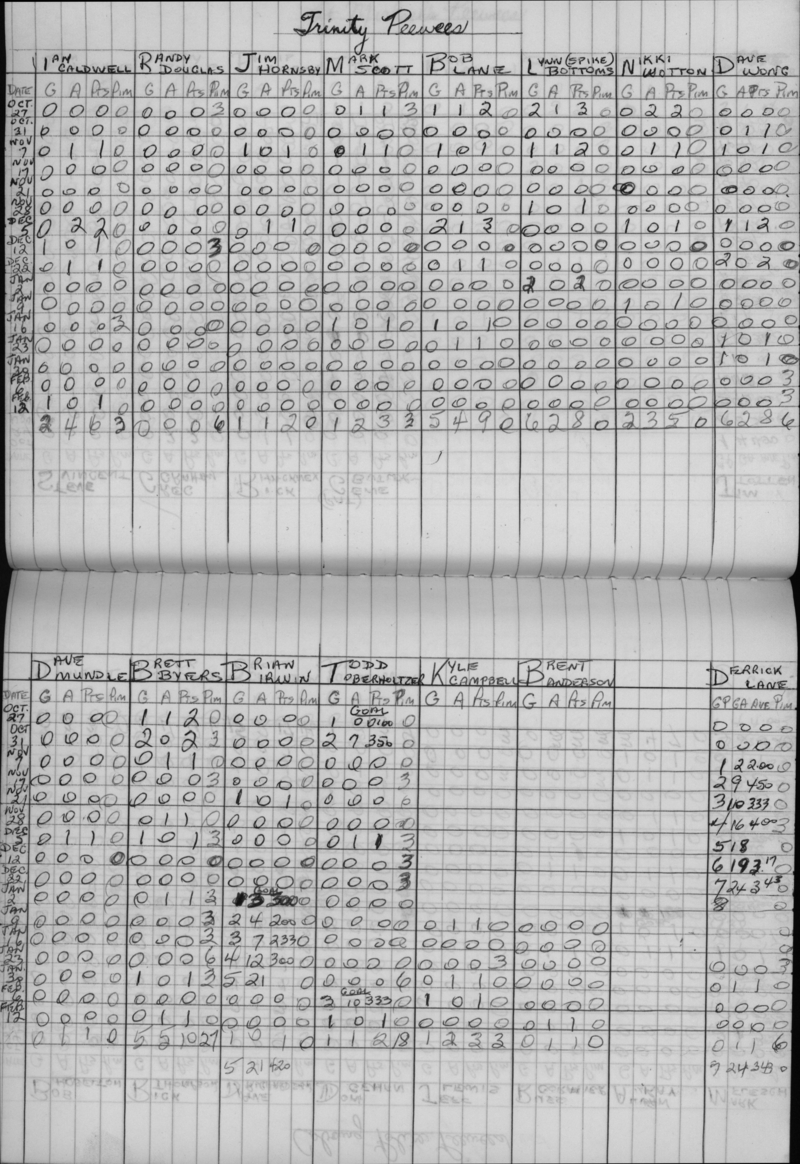 Trinity Peewees
IAN CALDWELL RANDY DOUGLAS JIM HORNSBY MARK SCOTT BOB LANE LYNN (SPIKE) BOTTOMS NIKKI WOTTON DAVE WONG
DATE G A Pts Pim G A Pts Pim G A Pts Pim G A Pts Pim G A Pts Pim G A Pts Pim G A Pts Pim G A Pts Pim
OCT. 27 0 0 0 0 0 0 0 3 0 0 0 0 0 1 1 3 1 1 2 0 2 1 3 0 0 2 2 0 0 0 0 0
OCT. 31 0 0 0 0 0 0 0 0 0 0 0 0 0 0 0 0 0 0 0 0 0 0 0 0 0 0 0 0 0 1 1 0
NOV 7 0 1 1 0 0 0 0 0 1 0 1 0 0 1 1 0 1 0 1 0 1 1 2 0 0 1 1 0 1 0 1 0
NOV 17 0 0 0 0 0 0 0 0 0 0 0 0 0 0 0 0 0 0 0 0 0 0 0 0 0 0 0 0 0 0 0 0
NOV 21 0 0 0 0 0 0 0 0 0 0 0 0 0 0 0 0 0 0 0 0 0 0 0 0 0 0 0 0 0 0 0 0
NOV 28 0 0 0 0 0 0 0 0 0 0 0 0 0 0 0 0 0 0 0 0 1 0 1 0 0 0 0 0 0 0 0 0
DEC 5 0 2 2 0 0 0 0 0 0 1 1 0 0 0 0 0 2 1 3 0 0 0 0 0 1 0 1 0 1 1 2 0
DEC 12 1 0 1 0 0 0 0 3 0 0 0 0 0 0 0 0 0 0 0 0 0 0 0 0 0 0 0 0 0 0 0 0
DEC 22 0 1 1 0 0 0 0 0 0 0 0 0 0 0 0 0 0 1 1 0 0 0 0 0 0 0 0 0 2 0 2 0
JAN 2 0 0 0 0 0 0 0 0 0 0 0 0 0 0 0 0 0 0 0 0 2 0 2 0 0 0 0 0 0 0 0 0
JAN 0 0 0 0 0 0 0 0 0 0 0 0 0 0 0 0 0 0 0 0 0 0 0 0 1 0 1 0 0 0 0 0
JAN 16 0 0 0 3 0 0 0 0 0 0 0 0 1 0 1 0 1 0 1 0 0 0 0 0 0 0 0 0 0 0 0 0
JAN 23 0 0 0 0 0 0 0 0 0 0 0 0 0 0 0 0 0 1 1 0 0 0 0 0 0 0 0 0 1 0 1 0
JAN 30 0 0 0 0 0 0 0 0 0 0 0 0 0 0 0 0 0 0 0 0 0 0 0 0 0 0 0 0 1 0 1 0
FEB 6 0 0 0 0 0 0 0 0 0 0 0 0 0 0 0 0 0 0 0 0 0 0 0 0 0 0 0 0 0 0 0 3
FEB. 12 1 0 1 0 0 0 0 0 0 0 0 0 0 0 0 0 0 0 0 0 0 0 0 0 0 0 0 0 0 0 0 3
2 4 6 3 0 0 0 6 1 1 2 0 1 2 3 3 5 4 9 0 6 2 8 0 2 3 5 0 6 2 8 6
DAVE MUNDLE BRETT BYERS BRIAN IRWIN TODD OBERHOLTZER KYLE CAMPBELL BRENT ANDERSON DERRICK LANE
DATE G A Pts Pim G A Pts Pim G A Pts Pim G A Pts Pim G A Pts Pim G A Pts Pim GP GA AVE Pim
GOAL
OCT. 27 0 0 0 0 1 1 2 0 0 0 0 0 1 0 0.00 0 0 0 0 0
OCT 31 0 0 0 0 2 0 2 3 0 0 0 0 2 7 350 0 0 0 0 0
NOV 7 0 0 0 0 0 1 1 0 0 0 0 0 0 0 0 0 1 2 200 0
NOV 17 0 0 0 0 0 0 0 3 0 0 0 0 0 0 0 3 2 9 450 0
NOV 21 0 0 0 0 0 0 0 0 1 0 1 0 0 0 0 0 3 10 333 0
NOV 28 0 0 0 0 0 1 1 0 0 0 0 0 0 0 0 0 4 16 400 3
DEC 5 0 1 1 0 1 0 1 3 0 0 0 0 0 1 1 3 5 18 0
DEC 12 0 0 0 0 0 0 0 0 0 0 0 0 0 0 0 3 6 19 3.17 0
DEC 22 0 0 0 0 0 0 0 0 0 0 0 0 0 0 0 3 7 24 3.43 0
GOAL
JAN 2 0 0 0 0 0 1 1 3 1 3 300 0 0 0 0 0 8 0
JAN 0 0 0 0 0 0 0 3 2 4 200 0 0 0 0 0 0 1 1 0 0 0 0 0
JAN 16 0 0 0 0 0 0 0 3 3 7 233 0 0 0 0 0 0 0 0 0 0 0 0 0
JAN 23 0 0 0 0 0 0 0 6 4 12 300 0 0 0 0 0 0 0 0 3 0 0 0 0 0 0 0 3
JAN 30 0 0 0 0 1 0 1 3 5 21 0 0 0 6 0 1 1 0 0 0 0 0 0 1 1 0
GOAL
FEB. 6 0 0 0 0 0 0 0 0 0 0 0 0 3 10 333 0 1 0 1 0 0 0 0 0 0 0 0 0
FEB 12 0 0 0 0 0 1 1 0 0 0 0 0 1 0 1 0 0 0 0 0 0 1 1 0 0 0 0 0
0 1 1 0 5 5 10 27 1 0 1 0 1 1 2 18 1 2 3 3 0 1 1 0 0 1 1 6
5 21 420 7 24 343 0